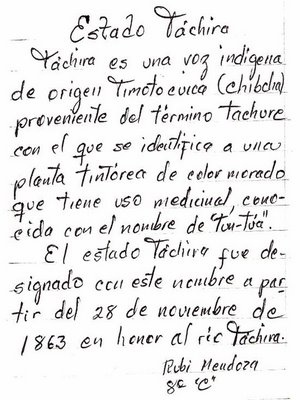 Estado Táchira
Táchira es una voz indigena
de origen Timotocuica (chibcha)
proveniente del término tachure
con el que se identifica a una
planta tintórea de color morado
que tiene uso medicinal, cono-
cida con el nombre de "Tun-Túa".
El estado Táchira fue de-
signado con este nombre a par
tir del 28 de noviembre de
1863 en honor al río Táchira.
Rubi Mendoza
8º "C"